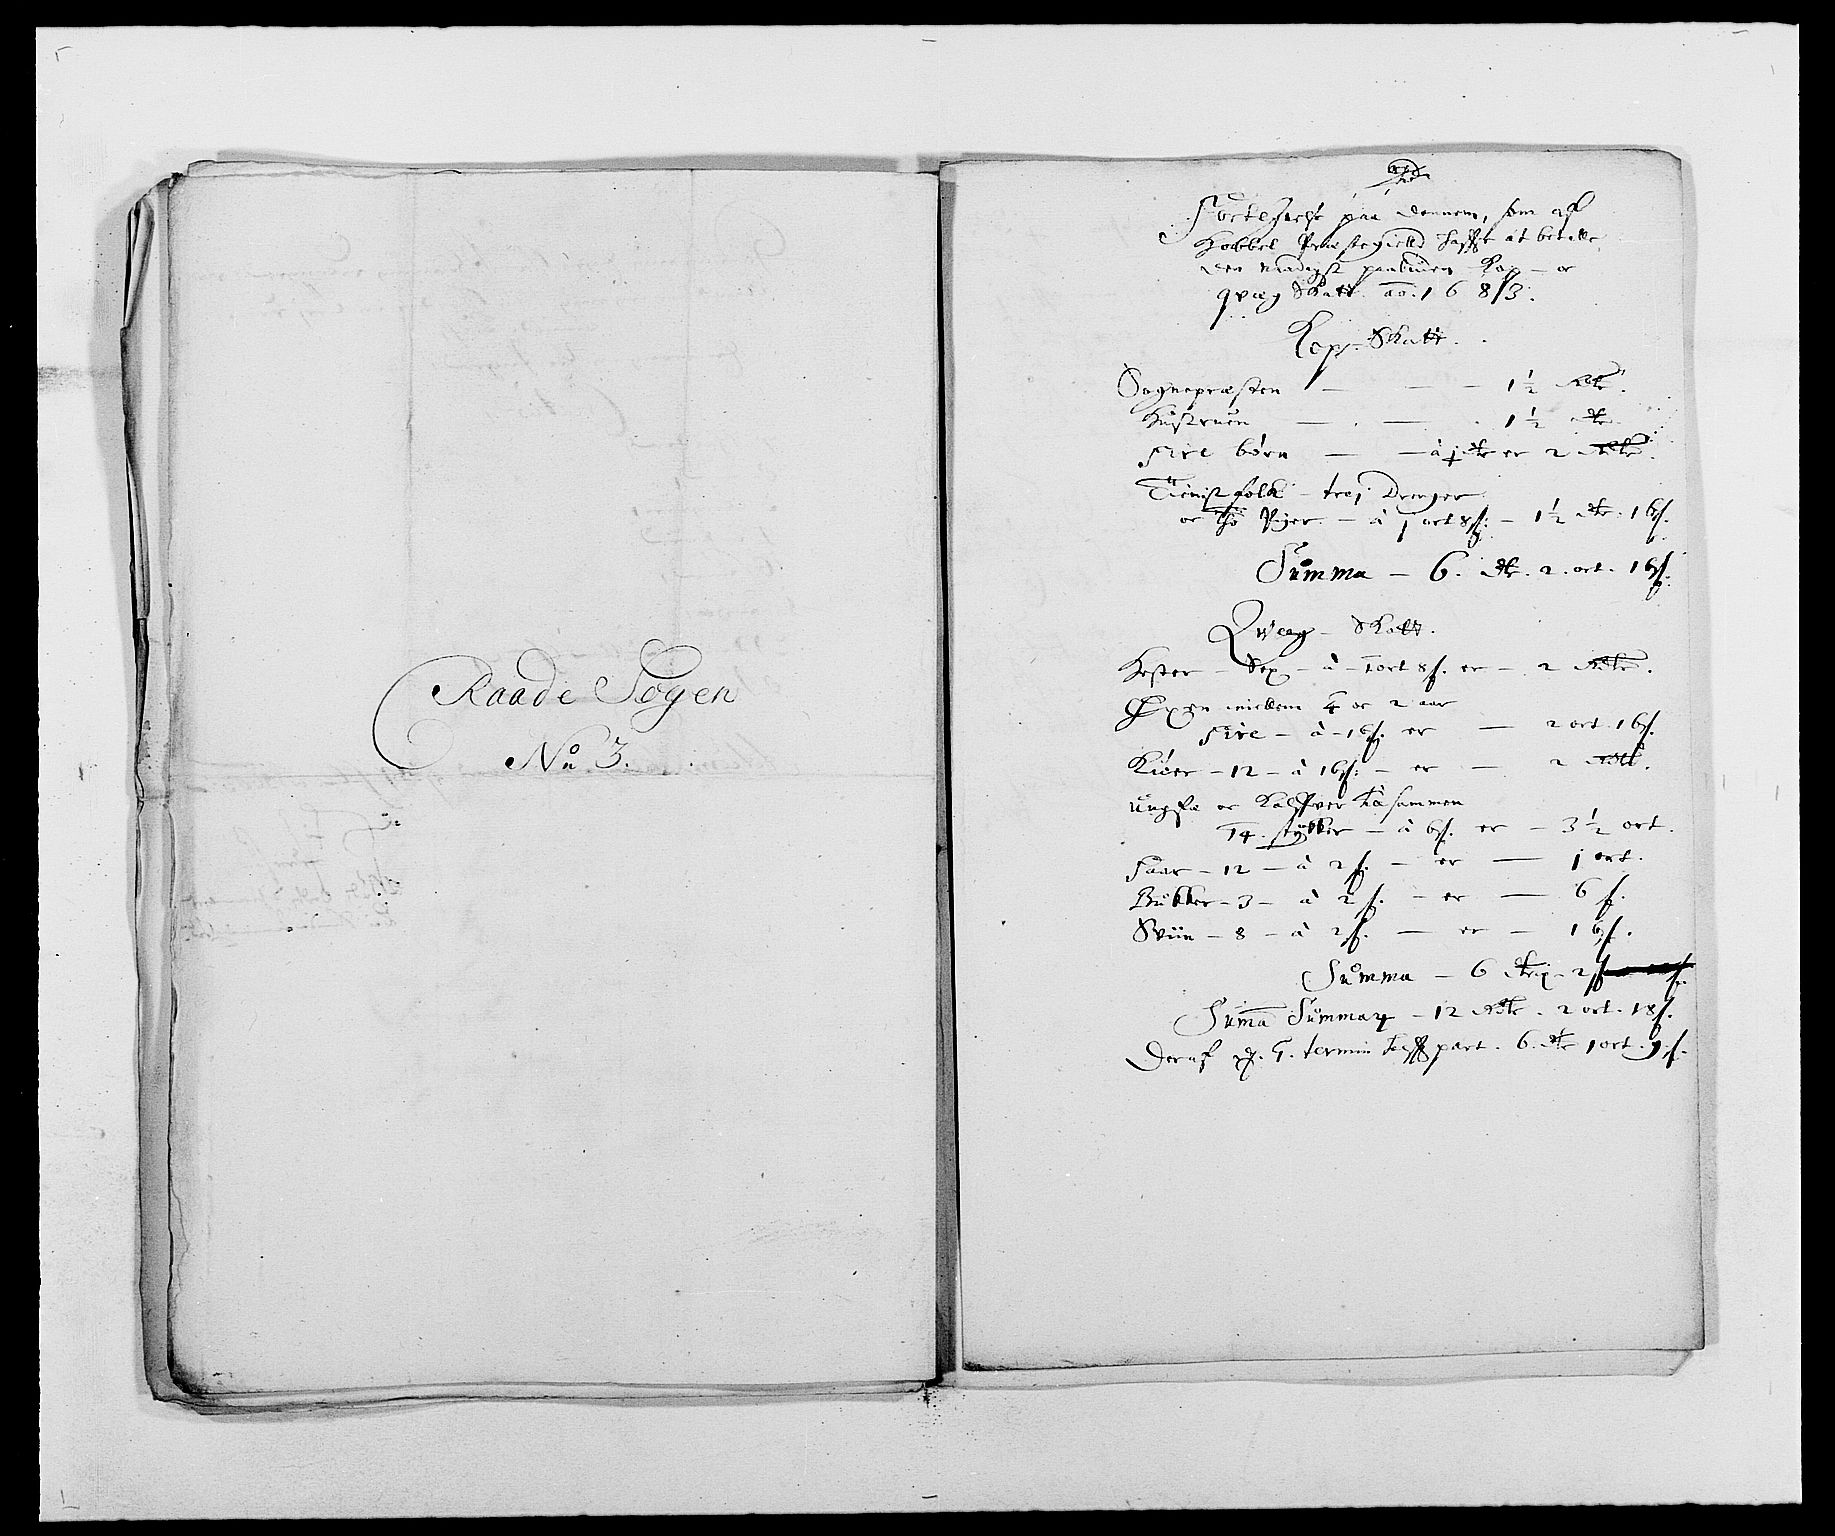 Raade Sogen
No 3.
Fortegnelse paa dennem, som af
Præstegield hafft at betalle
den naadigst paabuden Kop- oc
qvæg Skatt. ao. 1683.
Kop-Skatt.
Sognepræsten — — — 1½ Rdr.
Hustruen — . — . 1½ dr.
Fire børn — — à ½ dr er 2 Rdr.
Tienistfolk - trej Drenger
oc tho Piger. - à 1 ort 8 s: - 1½ dr. 16 s.
Summa — 6. dr. 2. ort. 16 s.
Qvæg - Skatt.
Hester - Sex - à - 1 ort 8 s. er - 2 Rdr.
Øxen mellem 4 oc 2 aar
Fire - à - 16 s. er — 2 ort. 16 s.
Kiøer - 12 - à 16 s: - er — 2 Rdr.
Ungfæ oc Kalfver tilsammen
14. stykker - à 6 s. er - 3½ ort.
Faar - 12 - à 2 s. - er — 1 ort.
Bukker - 3 - à 2 s. - er — 6 s.
Sviin - 8 - à 2 s. — er - 16 s.
Summa - 6 - 2 s.
Suma Summar - 12 Rdr. 2 ort. 18 s.
Deraf termin part. 6. dr 1 ort. 9 s.